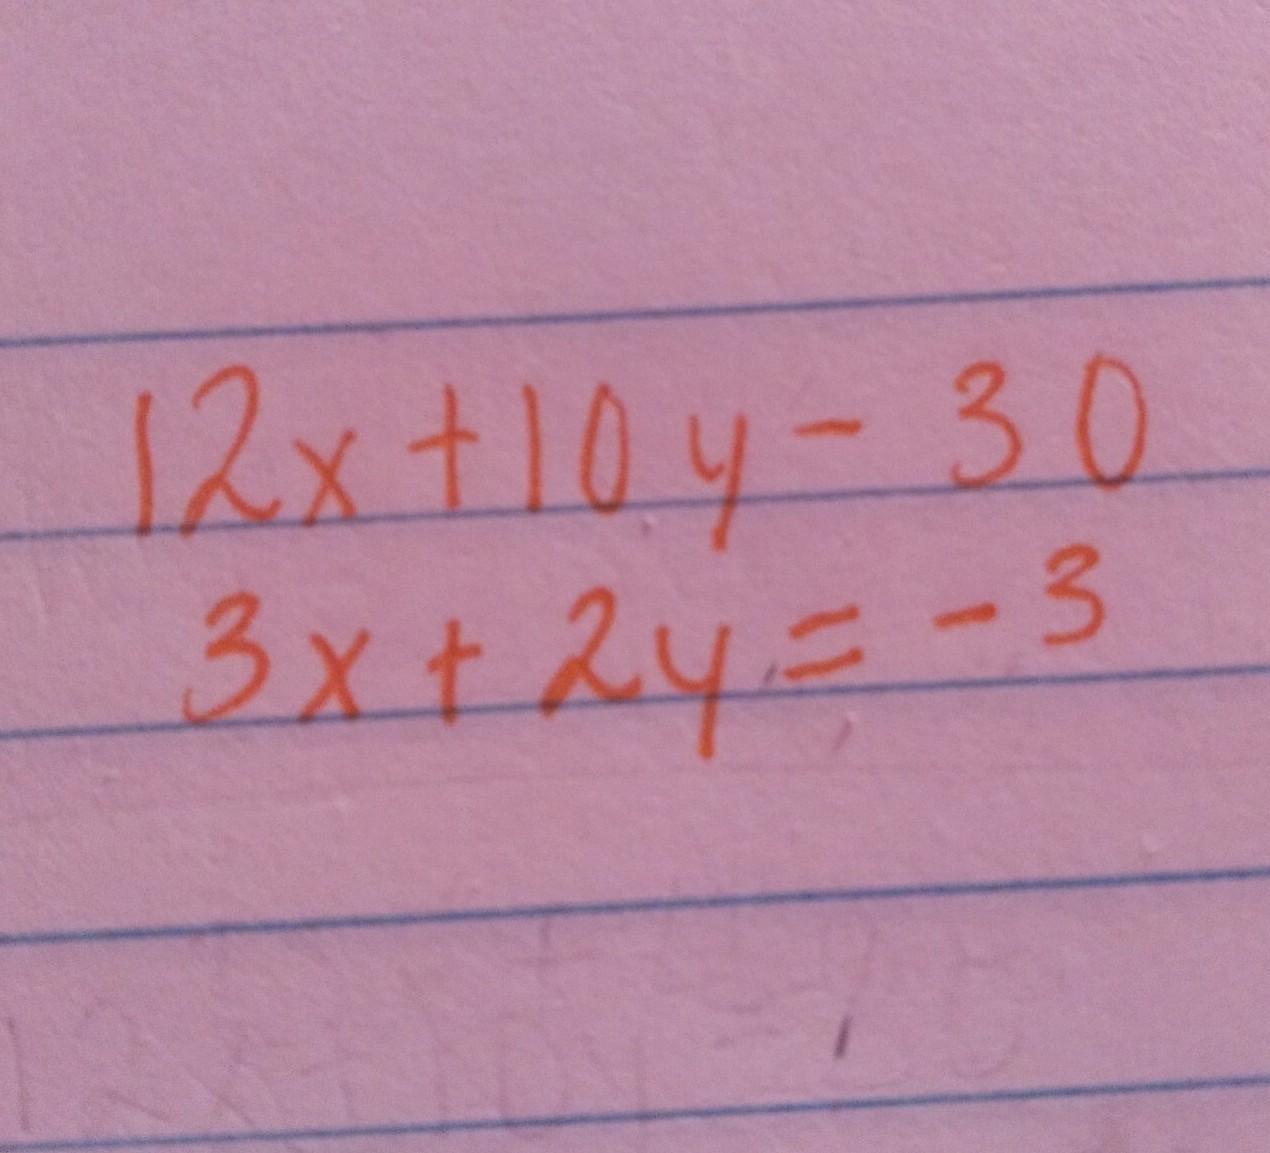 12x+10y- 30
3x + 2y = - 3